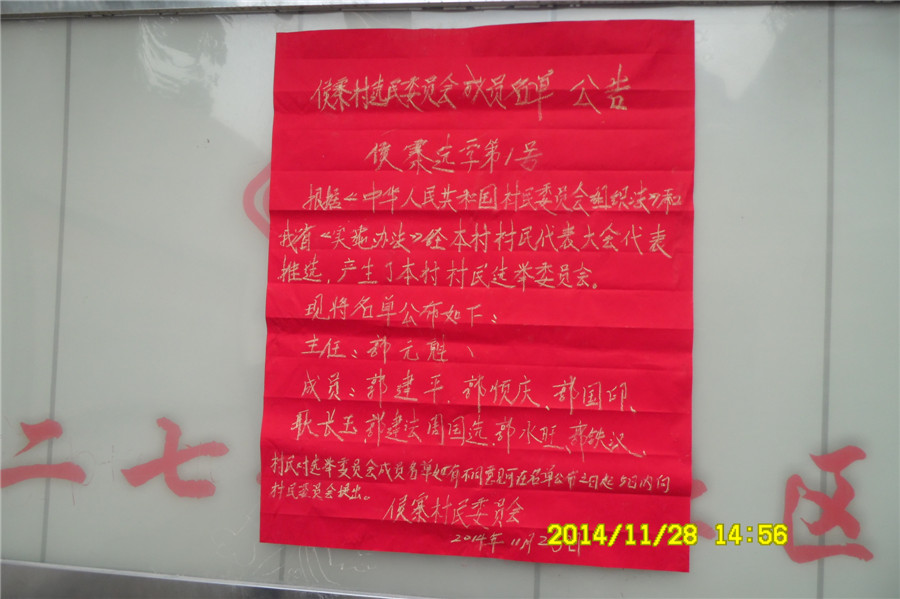 侯寨村选民委员会成员名单 公告
侯寨选字第1号
根据《中华人民共和国村民委员会组织法》和
我省《实施办法》经本村村民代表大会代表
推选,产生了本村村民选举委员会。
现将名单公布如下:
主任:郭元魁、
成员:郭建平、郭顺庆、郭国印、
长玉、郭建法、周国选、郭水旺、郭铁汉、
村民对选举委员会成员名单如有不同意见可在名单公布之日起 日内向
村民委员会提出。
侯寨村民委员会
2014年11月2 日
二七 区
2014/11/28 14:56